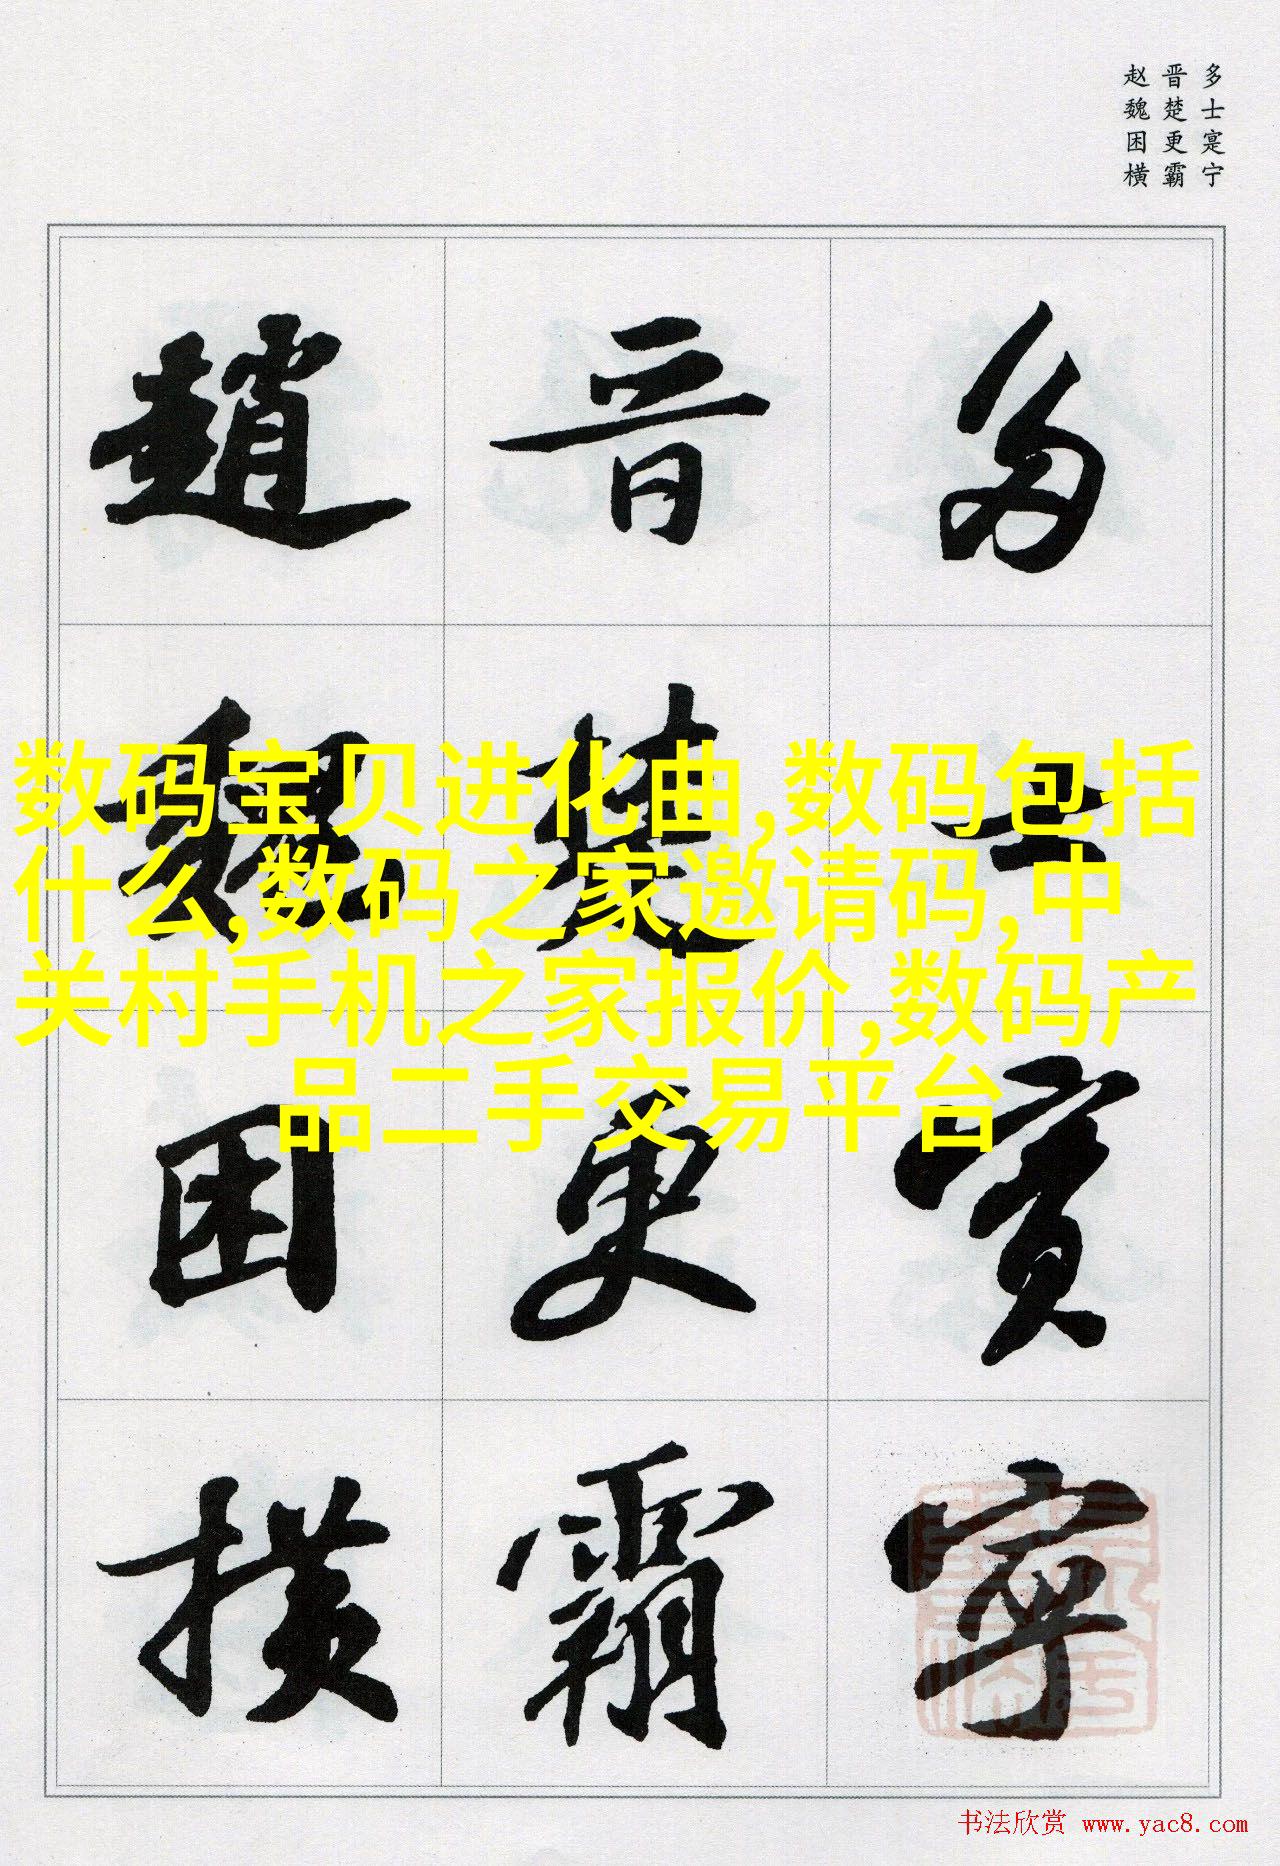 多士寔宁
晋楚更霸
赵魏困横
多士寔寧
晋楚更霸
趙魏困横
数码宝贝进化曲,数码包括
什么,数码之家邀请码,中
关村手机之家报价,数码产
品二手交易平台
书法欣赏 www.yac8.com